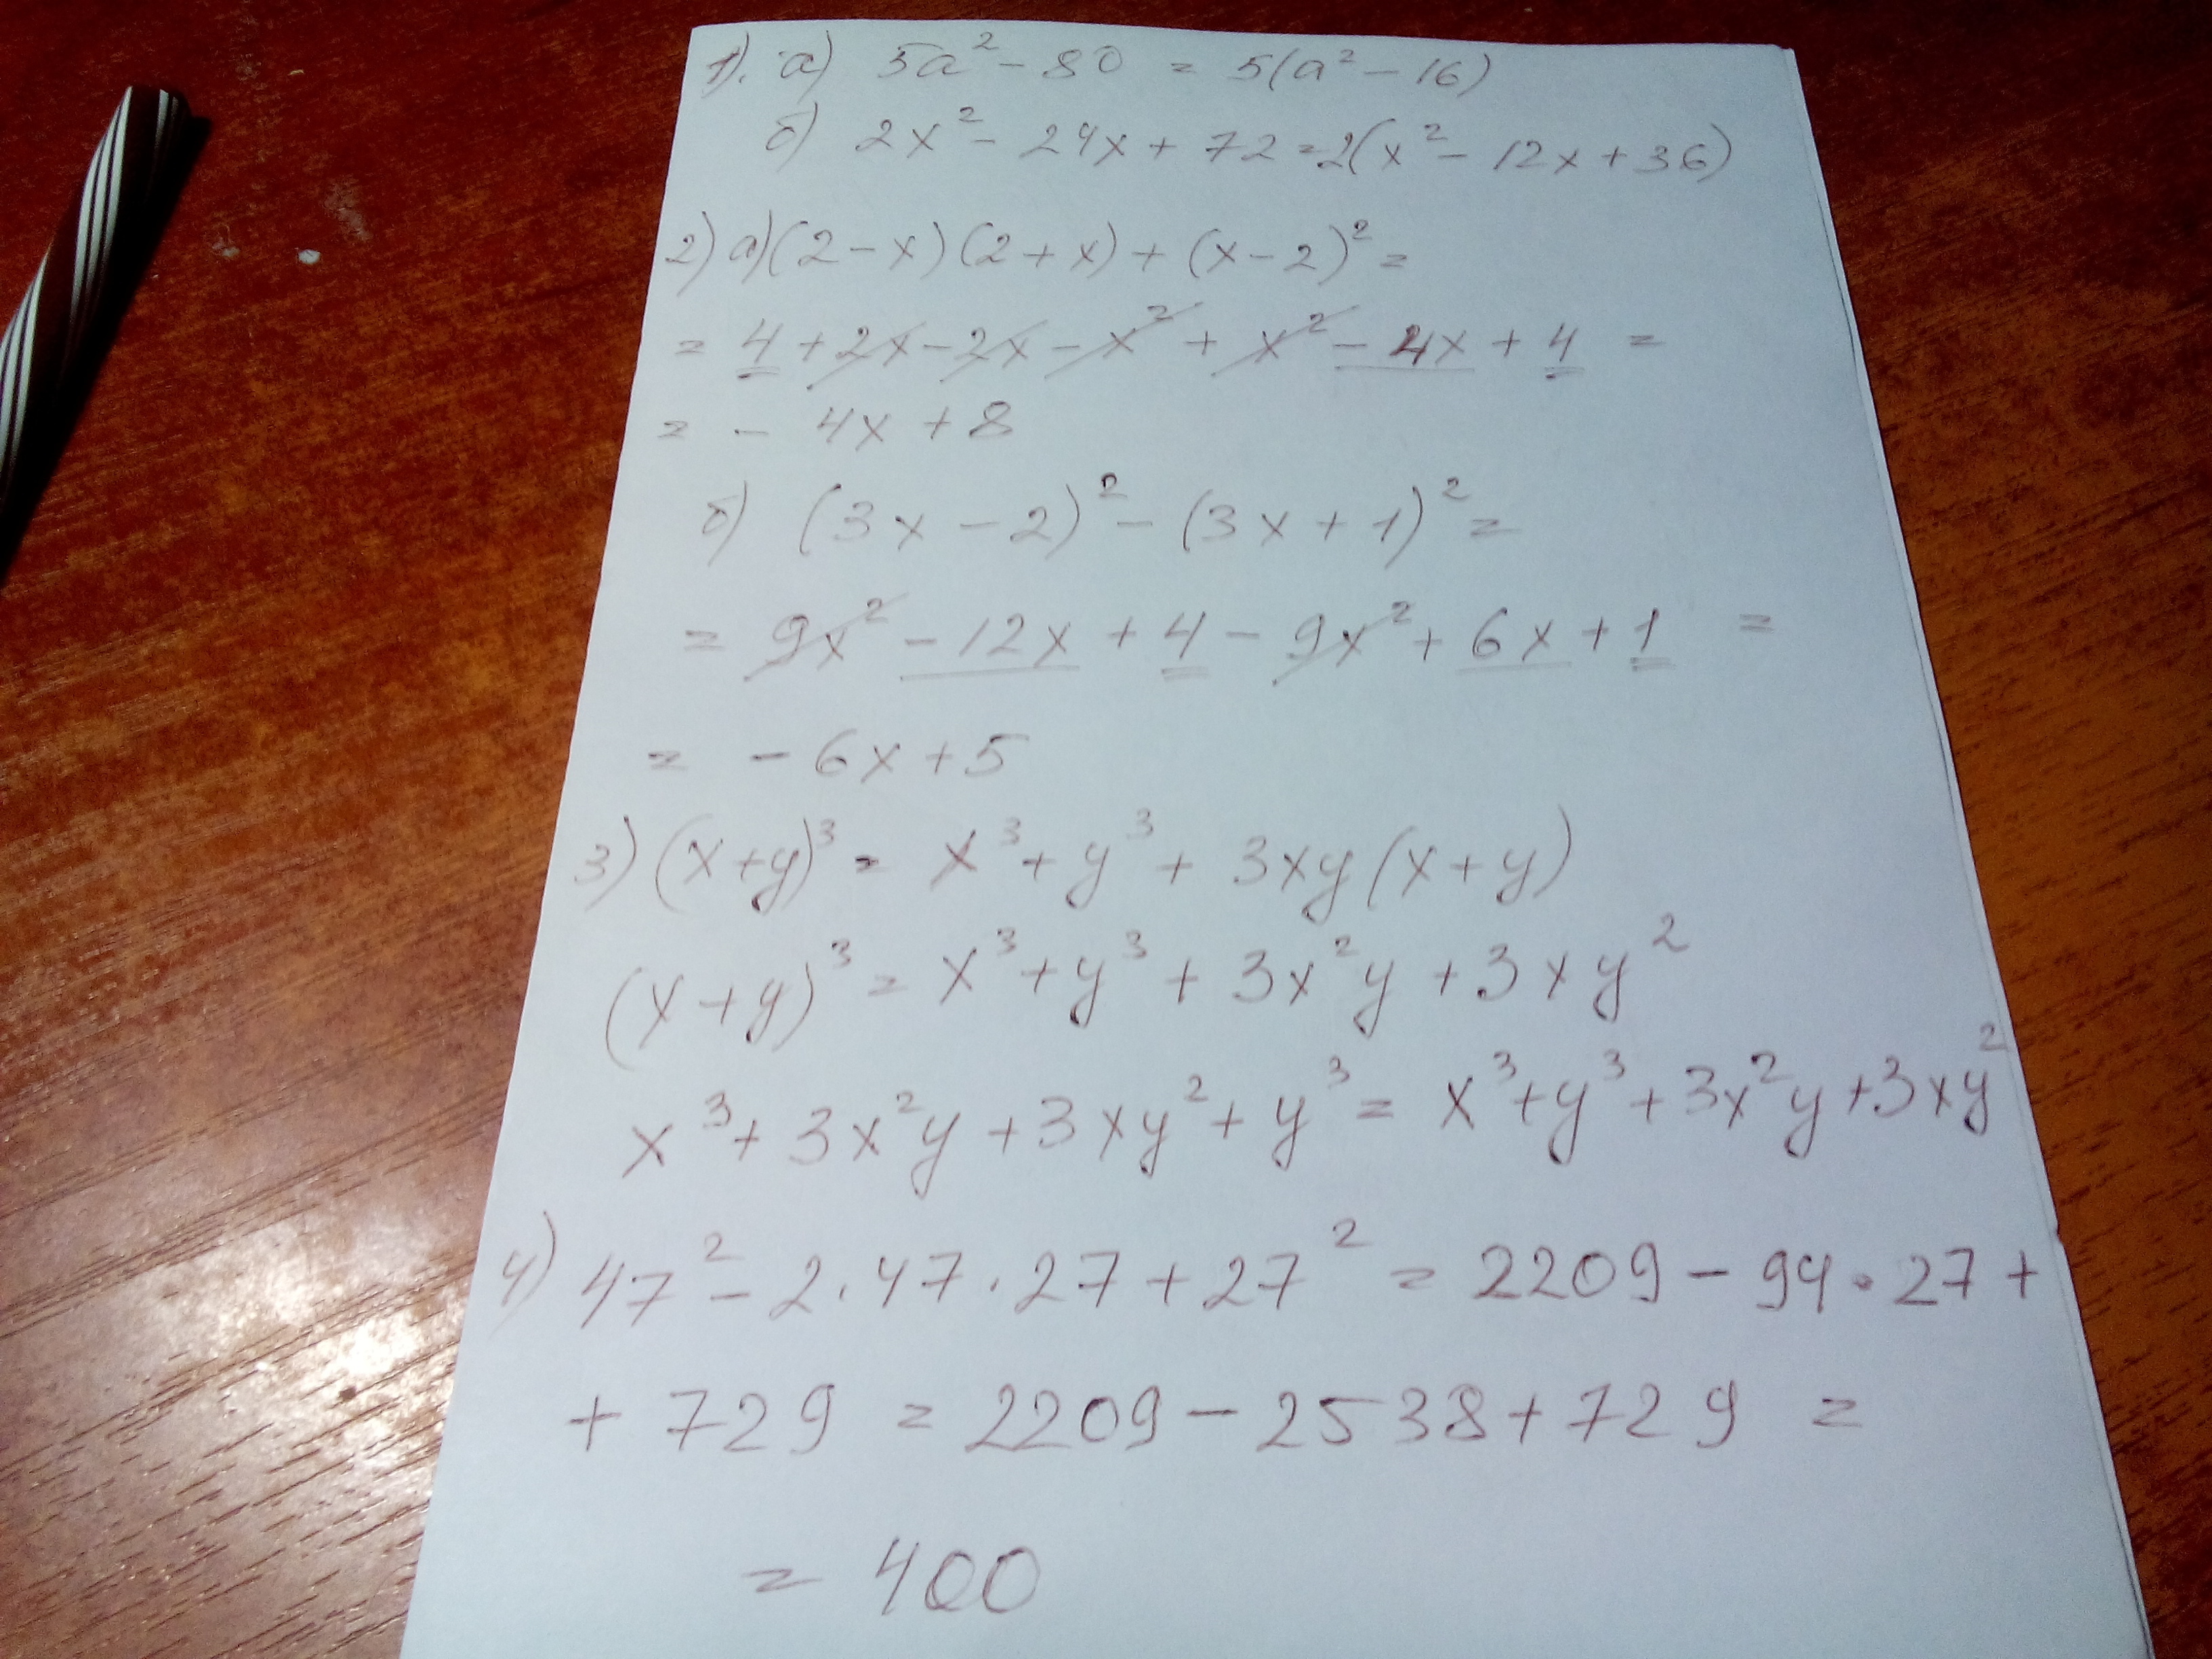 1). а) 5a² - 80 = 5(a² - 16)
б) 2x² - 24x + 72 = 2(x² - 12x + 36)
2) а) (2 - x)(2 + x) + (x - 2)² =
= 4 + 2x - 2x - x² + x² - 4x + 4 =
= - 4x + 8
б) (3x - 2)² - (3x + 1)² =
= 9x² - 12x + 4 - 9x² + 6x + 1 =
= - 6x + 5
3) (x + y)³ = x³ + y³ + 3xy(x + y)
(x + y)³ = x³ + y³ + 3x²y + 3xy²
x³ + 3x²y + 3xy² + y³ = x³ + y³ + 3x²y + 3xy²
4) 47² - 2 · 47 · 27 + 27² = 2209 - 94 · 27 +
+ 729 = 2209 - 2538 + 729 =
= 400